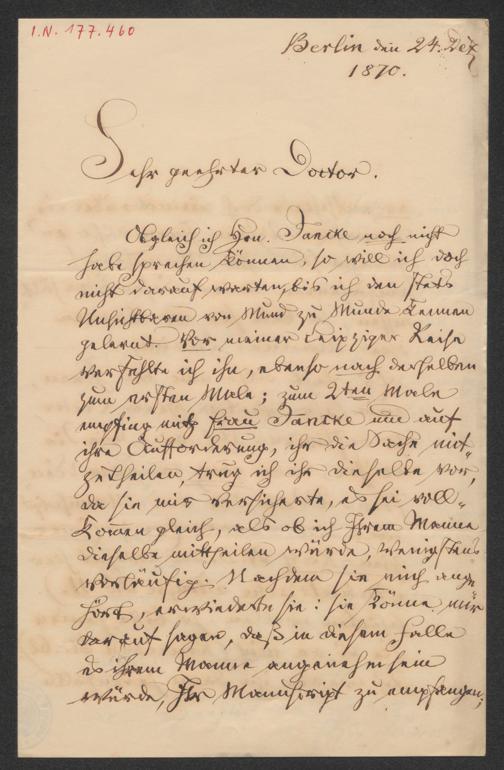 I.N. 177.460
Berlin den 24. Dez
1870.
Sehr geehrter Doctor.
Obgleich ich Hrn. Jancke noch nicht
habe sprechen können, so will ich doch
nicht darauf warten, bis ich den stets
Unsichtbaren von Mund zu Munde kennen
gelernt. Vor meiner Leipziger Reise
verfehlte ich ihn, ebenso nach derselben
zum ersten Male; zum 2ten Male
empfing mich Frau Jancke und auf
ihre Aufforderung, ihr die Sache mit-
zutheilen, trug ich ihr dieselbe vor,
da sie mir versicherte, es sei voll-
kommen gleich, als ob ich Ihrem Manne
dieselbe mittheilen würde, wenigstens
vorläufig. Nachdem sie mich ange
hört, erwiederte sie: sie könne mir
darauf sagen, daß in diesem Falle
es ihrem Manne angenehm sein
würde, Ihr Manuscript zu empfangen;